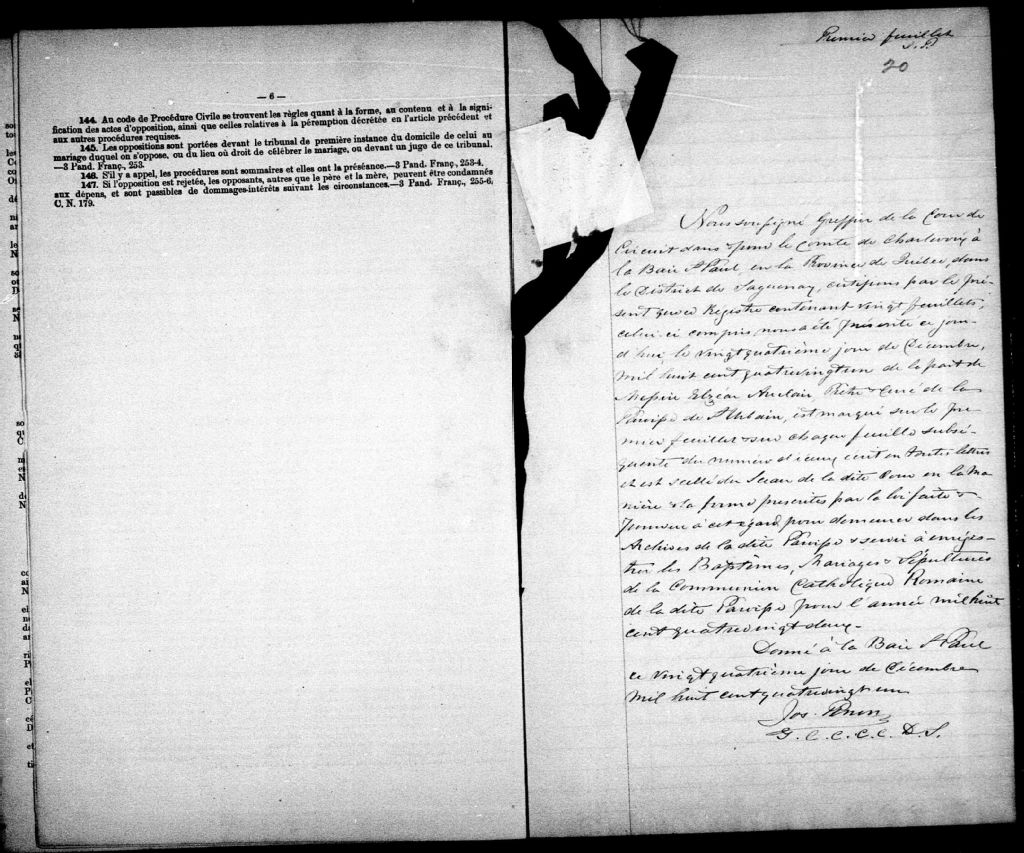 — 6 —
144. Au code de Procédure Civile se trouvent les règles quant à la forme, au contenu et à la signi-
fication des actes d'opposition, ainsi que celles relatives à la péremption décrétée en l'article précédent et
aux autres procédures requises.
145. Les oppositions sont portées devant le tribunal de première instance du domicile de celui au
mariage duquel on s'oppose, ou du lieu où droit de célébrer le mariage, ou devant un juge de ce tribunal.
—3 Pand. Franç., 253.
146. S'il y a appel, les procédures sont sommaires et elles ont la préséance.—3 Pand. Franç., 253-4.
147. Si l'opposition est rejetée, les opposants, autres que le père et la mère, peuvent être condamnés
aux dépens, et sont passibles de dommages-intérêts suivant les circonstances.—3 Pand. Franç., 255-6,
C. N. 179.
Premier feuillet
J. P.
20
Nous soussigné Greffier de la Cour de
Circuit dans & pour le Comté de Charlevoix à
la Baie St Paul en la Province de Québec, dans
le District de Saguenay, certifions par le pré-
sent que ce Régistre contenant vingt feuillets,
celui-ci compris, nous a été présenté ce jour-
d'hui, le vingt quatrième jour de Décembre,
mil huit cent quatrevingt un de la part de
Messire Elzéar Auclair, Prêtre & Curé de la
Paroisse de St Urbain, est marqué sur le pre-
mier feuillet & sur chaque feuille subsé-
quente du numéro d'iceux écrit en toutes lettres
et est scellé du Sceau de la dite Cour en la ma-
nière & la forme prescrites par la loi faite &
pourvue à cet égard, pour demeurer dans les
Archives de la dite Paroisse & servir à enrégis-
trer les Baptêmes, Mariages & Sépultures
de la Communion Catholique Romaine
de la dite Paroisse pour l'année mil huit
cent quatrevingt deux.
Donné à la Baie St Paul
ce vingt quatrième jour de Décembre
mil huit cent quatrevingt un
Jos. Perron
G. C. C. C. C. D. S.